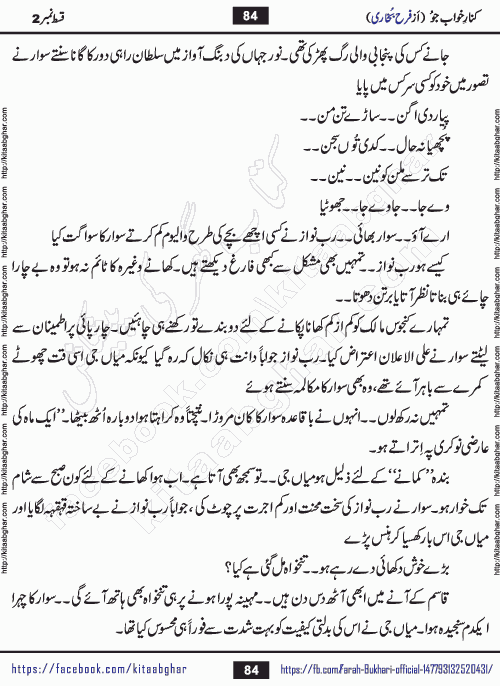 کنارِ خواب جُو (از فرح بخاری) 84 قسط نمبر 2
جانے کس کی پنجابی والی رگ پھڑکی تھی۔ نور جہاں کی دبنگ آواز میں سلطان راہی دور کا گانا سنتے سوار نے
تصور میں خود کو کسی سرکس میں پایا
پیار دی اگن۔۔ساڑے تن من۔۔
پُچھیا نہ حال۔۔کدی تُوں سجن۔۔
تک ترسے ملن کو نین۔۔نین۔۔
وے جا۔۔جاوے جا۔۔جھوٹیا
ارے آؤ۔۔سوار بھائی۔۔رب نواز نے کسی اچھے بچے کی طرح والیوم کم کرتے سوار کا سواگت کیا
کیسے ہو رب نواز۔۔تمہیں بھی مشکل سے بھی فارغ دیکھتے ہیں۔ کھانے وغیرہ کا ٹائم نہ ہو تو وہ بے چارا
چائے ہی بناتا نظر آتا یا برتن دھوتا۔۔
تمہارے کنجوس مالک کو کم از کم کھانا پکانے کے لئے دو بندے تو رکھنے ہی چاہئیں۔ چارپائی پر اطمینان سے
لیٹتے سوار نے علی الاعلان اعتراض کیا۔ رب نواز جواباً دانت ہی نکال کہ رہ گیا کیونکہ میاں جی اسی وقت چھوٹے
کمرے سے باہر آئے تھے، وہ بھی سوار کا مکالمہ سنتے ہوئے
تمہیں نہ رکھ لوں۔۔انہوں نے باقاعدہ سوار کا کان مروڑا۔ نتیجتاً وہ کراہتا ہوا دوبارہ اُٹھ بیٹھا۔ "ایک ماہ کی
عارضی نوکری پہ اِتراتے ہو۔
بندہ "کمانے" کے لئے ذلیل ہو میاں جی۔۔تو سمجھ بھی آتا ہے۔ اب ہوا کھانے کے لئے کون صبح سے شام
تک خوار ہو۔ سوار نے رب نواز کی سخت محنت اور کم اجرت پر چوٹ کی، جواباً رب نواز نے بے ساختہ قہقہہ لگایا اور
میاں جی اس بار کھسیا کر ہنس پڑے
بڑے خوش دکھائی دے رہے ہو۔۔تنخواہ مل گئی ہے کیا؟
قاسم کے آنے میں ابھی آٹھ دس دن ہیں۔۔مہینہ پورا ہونے پر ہی تنخواہ بھی ہاتھ آئے گی۔۔سوار کا چہرا
ایکدم سنجیدہ ہوا۔ میاں جی نے اس کی بدلتی کیفیت کو بہت شدت سے فوراً ہی محسوس کیا تھا۔
https://facebook.com/kitaabghar 84 https://fb.com/Farah-Bukhari-official-147793132520431/
http://kitaabghar.com